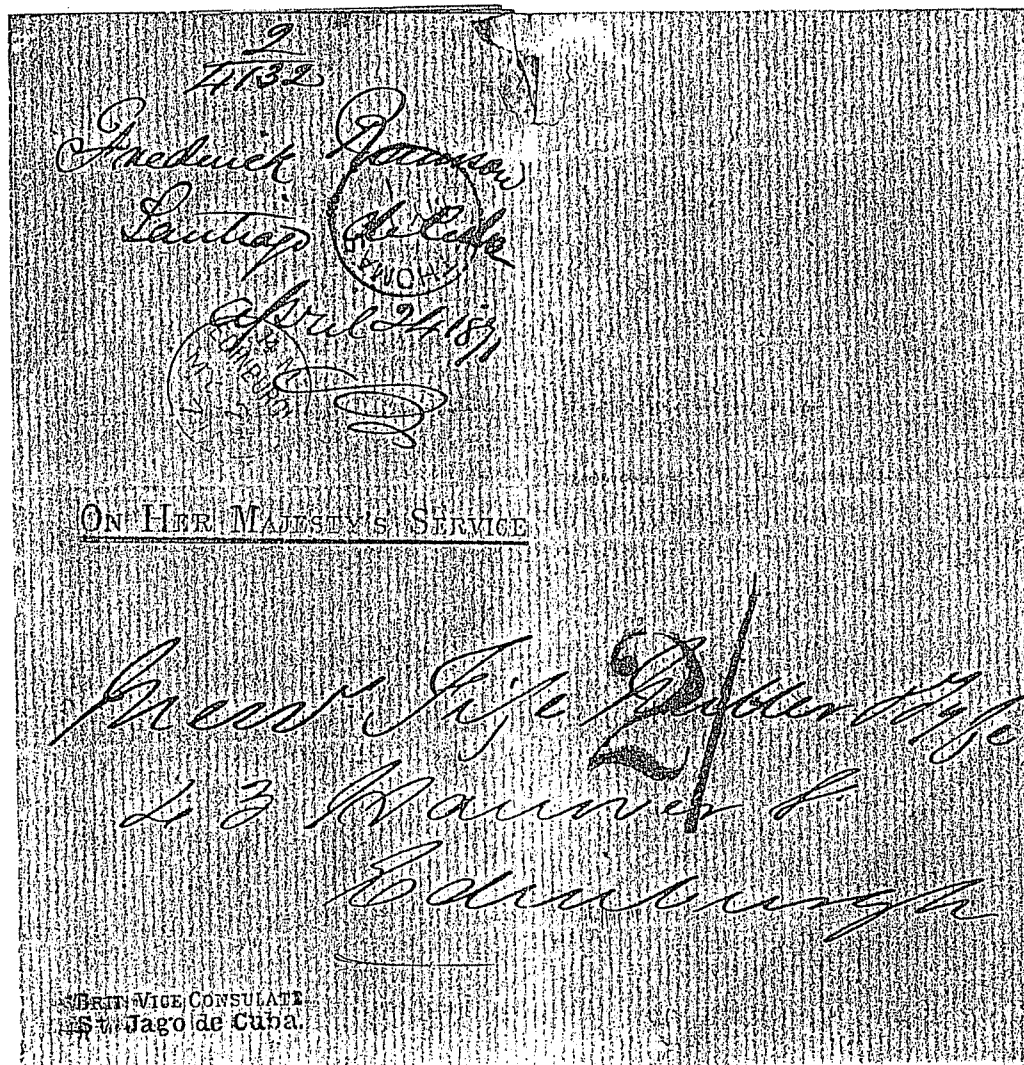 2
4132
Frederick Ramsden
Santiago de Cuba
THOMAS
April 24 1871
EDINBURGH
ON HER MAJESTY'S SERVICE
Messrs Fife
2/
43 Hanover St.
Edinburgh
BRIT. VICE CONSULATE
St. Jago de Cuba.